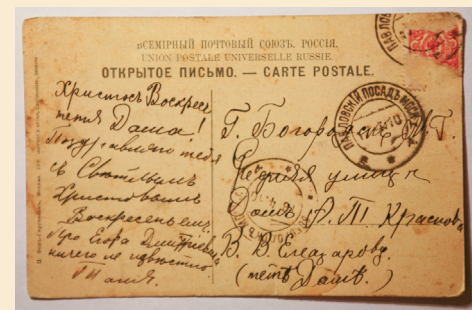 ВСЕМІРНЫЙ ПОЧТОВЫЙ СОЮЗЪ. РОССІЯ.
UNION POSTALE UNIVERSELLE RUSSIE.
ОТКРЫТОЕ ПИСЬМО. — CARTE POSTALE.
Христосъ Воскресе
тетя Даша!
Поздравляю тебя
съ Свѣтлымъ
Христовымъ
Воскресеньемъ.
Про Егора Дмитрiевича
ничего не извѣстно
Маня.
ПАВЛОВСКІЙ ПОСАДЪ МОСК.
Г. Богородскъ М. Г.
улица
домъ А. Т. Краснова
В. В. Елеазарову
(тетѣ Дашѣ.)